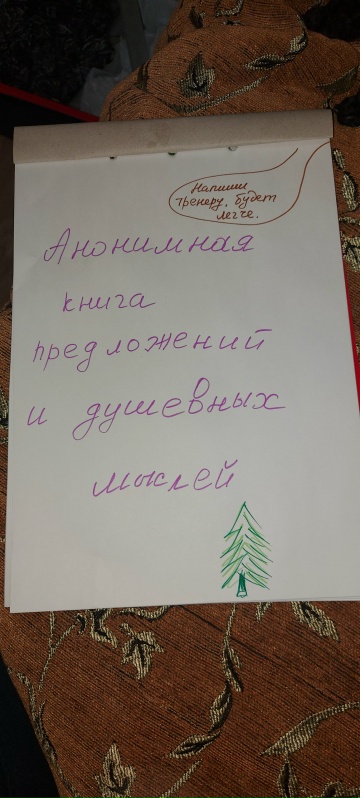 Напиши
тренеру, будет
легче.
Анонимная
книга
предложений
и душевных
мыслей